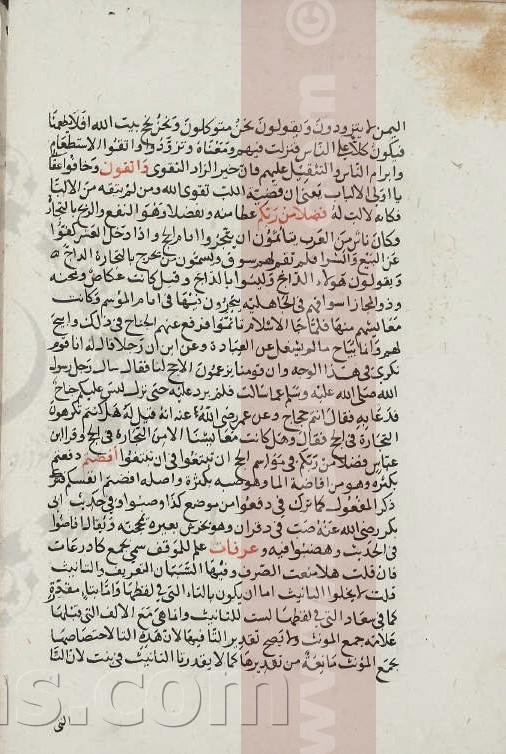 اليمن لا يتزودون ويقولون نحن متوكلون ونحن نحج بيت الله افلا يطعمنا
فيكونون كلا على الناس فنزلت فيهم ومعناه وتزودوا واتقوا الاستطعام
وابرام الناس والتثقيل عليهم فان خير الزاد التقوى واتقون وخافوا عقابي
يا اولى الالباب يعنى ان قضية اللب تقوى الله ومن لم يتقه من الالبا
فكانه لا لب له فضلا من ربكم عطا منه وتفضلا وهو النفع والربح بالتجارة
وكان ناس من العرب يتاثمون ان يتجروا ايام الحج واذا دخل العشر كفوا
عن البيع والشرا فلم تقم لهم سوق ويسمون من يخرج بالتجارة الداج
ويقولون هولا الداج وليسوا بالحاج وقيل كانت عكاظ ومجنة
وذو المجاز اسواقهم فى الجاهلية يتجرون فيها فى ايام الموسم وكانت
معايشهم منها فلما جا الاسلام تاثموا فرفع عنهم الجناح فى ذلك وابيح
لهم وانما يباح ما لم يشغل عن العبادة وعن ابن عمر ان رجلا قال له انا قوم
نكرى فى هذا الوجه وان قوما يزعمون الا حج لنا فقال سال رجل رسول
الله صلى الله عليه وسلم عما سالت فلم يرد عليه حتى نزل ليس عليكم جناح
فدعا به فقال انتم حجاج وعن عمر رضى الله عنه انه قيل له هل كنتم تكرهون
التجارة فى الحج فقال وهل كانت معايشنا الا من التجارة فى الحج وقرا ابن
عباس فضلا من ربكم فى مواسم الحج ان تبتغوا فى ان تبتغوا افضتم دفعتم
بكثرة وهو من افاضة الما وهو صبه بكثرة واصله افضتم انفسكم فترك
ذكر المفعول كما ترك فى دفعوا من موضع كذا وصبوا وفى حديث ابى
بكر رضى الله عنه صب فى دقران وهو يخرش بعيره بمحجنه ويقال افاضوا
فى الحديث وهضبوا فيه وعرفات علم للموقف سمى بجمع كاذرعات
فان قلت هلا منعت الصرف وفيها السببان التعريف والتانيث
قلت لا يخلوا التانيث اما ان يكون بالتا التى فى لفظها واما بتا مقدرة
كما فى سعاد التى فى لفظها ليست للتانيث وانما هى مع الالف التى قبلها
علامة جمع المونث ولا يصح تقدير التا فيها لان هذه التا لاختصاصها
بجمع المونث مانعة من تقديرها كما لا يقدر تا التانيث فى بنت لان التا
التى
www
ms.com